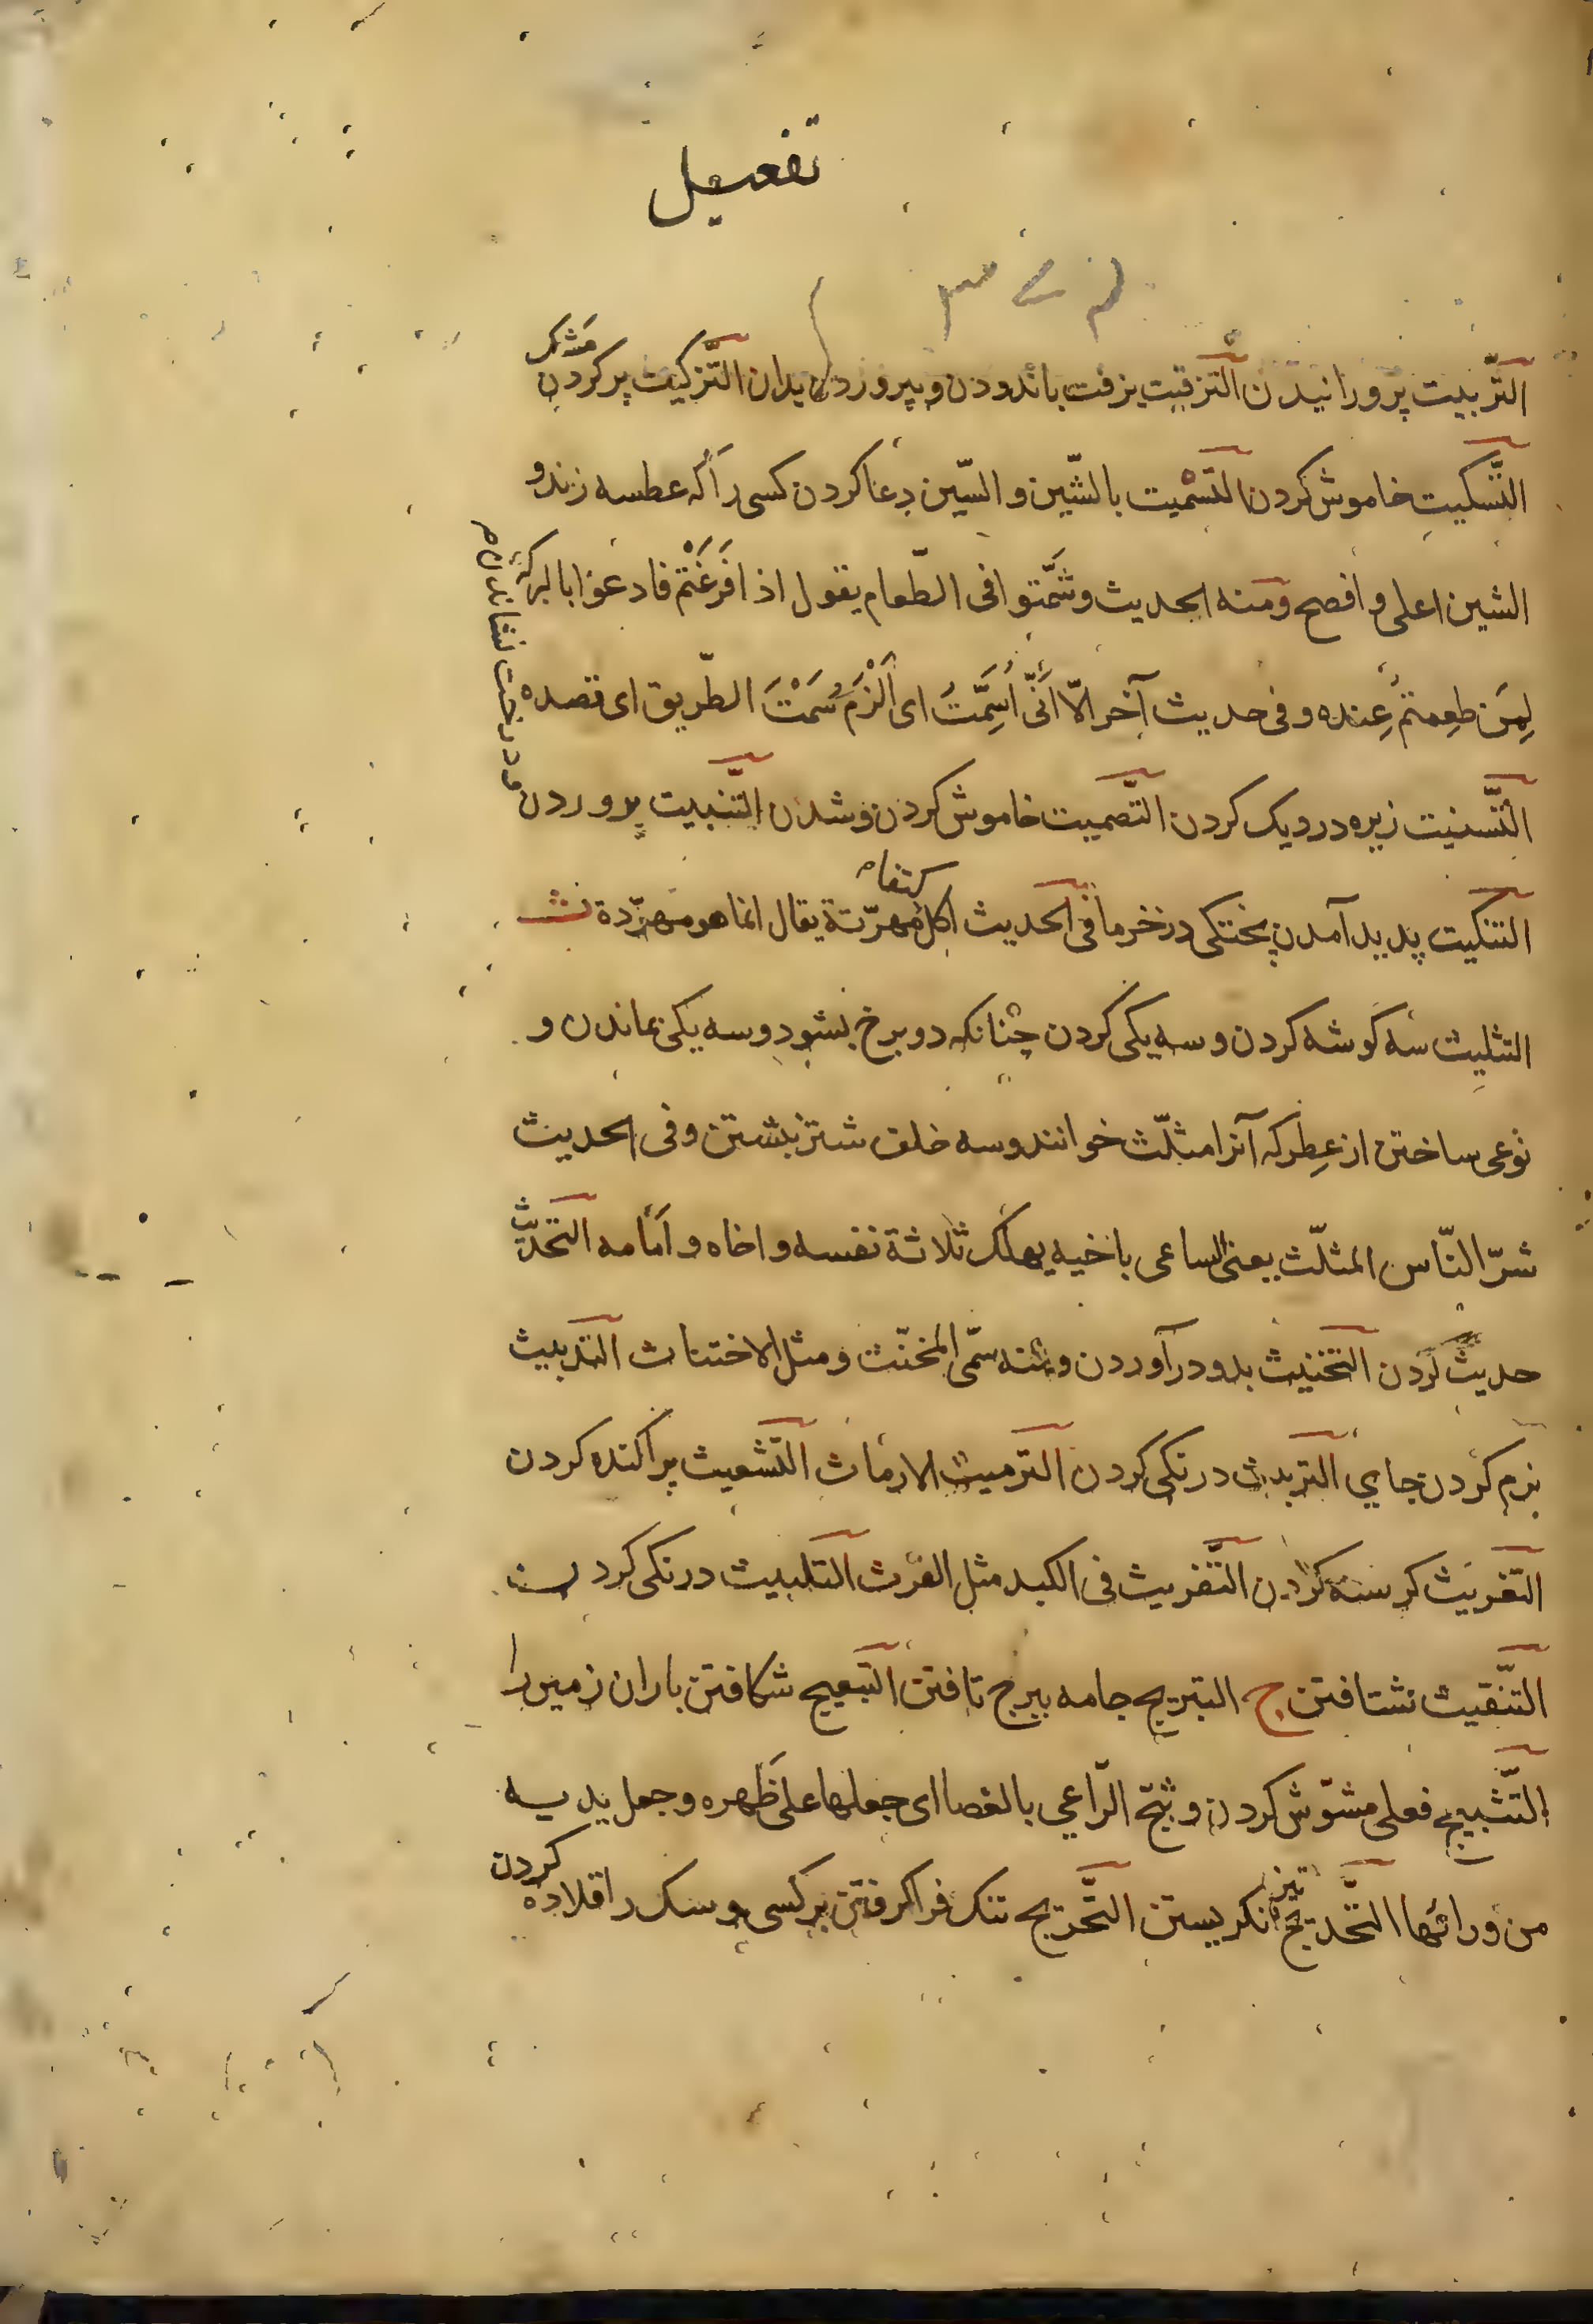 تفعیل
التّربیت پرورانیدن التّزفیت بزفت باندودن و بپروردن بدان التّزکیت پر کردن مشک
التّسکیت خاموش کردن التّسمیت بالشّین و السّین دعا کردن کسی را که عطسه زند و
الشین اعلی و افصح و منه الحدیث و شمّتوا فی الطّعام یقول اذا فَرَغْتم فادعوا بالبرکة
لِمَن طَعِمتم عِنده و فی حدیث آخر الّا انّی اُسَمِّتُ ای اَلْزَمُ سَمْتَ الطّریق ای قصده
التّسنیت زیره در دیک کردن التّصمیت خاموش کردن و شدن التّنبیت پروردن
و درخت نشاندن م
التنکیت پدید آمدن پختکی در خرما فی الحدیث اکل کتفا مهرّتة یقال انما هو مهرّدة ث
التثلیث سه کوشه کردن و سه یکی کردن چنانکه دو برخ بشود و سه یکی بماندن و
نوعی ساختن از عِطر که آنرا مثلّث خوانند و سه خلف شتر ببستن و فی الحدیث
شرّ النّاس المثلّث یعنی الساعی باخیه یهلک ثلاثة نفسه و اخاه و امامه التحدیث
حدیث کردن التخنیث بدو درآوردن و منه سمّی المخنّث و مثل الاختناث التدییث
نرم کردن جای التربیث درنکی کردن الترمیث الارماث التشعیث پراکنده کردن
التّغریث کرسنه کردن التّفریث فی الکبد مثل الفرث التلبیث درنکی کردن
التّنقیث بشتافتن ج التبریج جامه ببرج تافتن التبعیج شکافتن باران زمین را
التّثبیج فعلی مشوّش کردن و ثبّج الرّاعی بالعصا ای جعلها علی ظهره و جعل یدیه
من ورائها التّحدیج تیز نکریستن التّحریج تنک فرا کرفتن بر کسی و سک را قلاده کردن